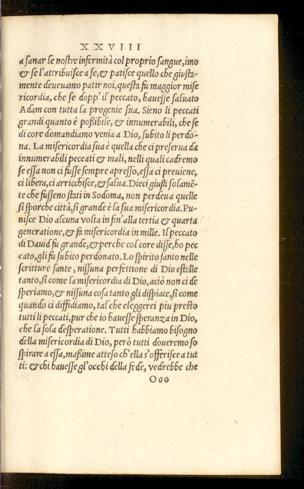 XXVIII
a sanar le nostre infermità col proprio sangue, imo
& se l'attribuisce a se, & patisce quello che giusta-
mente deueuamo patir noi, questa fu maggior mise
ricordia, che se dopp'il peccato, hauesse saluato
Adam con tutta la progenie sua. Sieno li peccati
grandi quanto è poßibile, & innumerabili, che se
di core domandiamo venia a Dio, subito li perdo-
na. La misericordia sua è quella che ci preserua da
innumerabili peccati & mali, nelli quali cadremo
se essa non ci fusse sempre apresso, essa ci preuiene,
ci libera, ci arricchisce, & salua. Dieci giusti solamē-
te che fusseno stati in Sodoma, non perdeua quelle
si sporche città, si grande è la sua misericordia. Pu-
nisce Dio alcuna volta in fin' alla tertia & quarta
generatione, & fa misericordia in mille. Il peccato
di Dauid fu grande, & perche col core disse, ho pec
cato, gli fu subito perdonato. Lo spirito santo nelle
scritture sante, nissuna perfettione di Dio estolle
tanto, si come la misericordia di Dio, aciò non ci de
speriamo, & nissuna cosa tanto gli dispiace, si come
quando ci diffidiamo, tal che eleggerei piu presto
tutti li peccati, pur che io hauesse speranza in Dio,
che la sola desperatione. Tutti habbiamo bisogno
della misericordia di Dio, però tutti doueremo so
spirare a essa, maßime atteso ch'ella s'offerisce a tut
ti: & chi hauesse gl'occhi della fede, vedrebbe che
Ooo